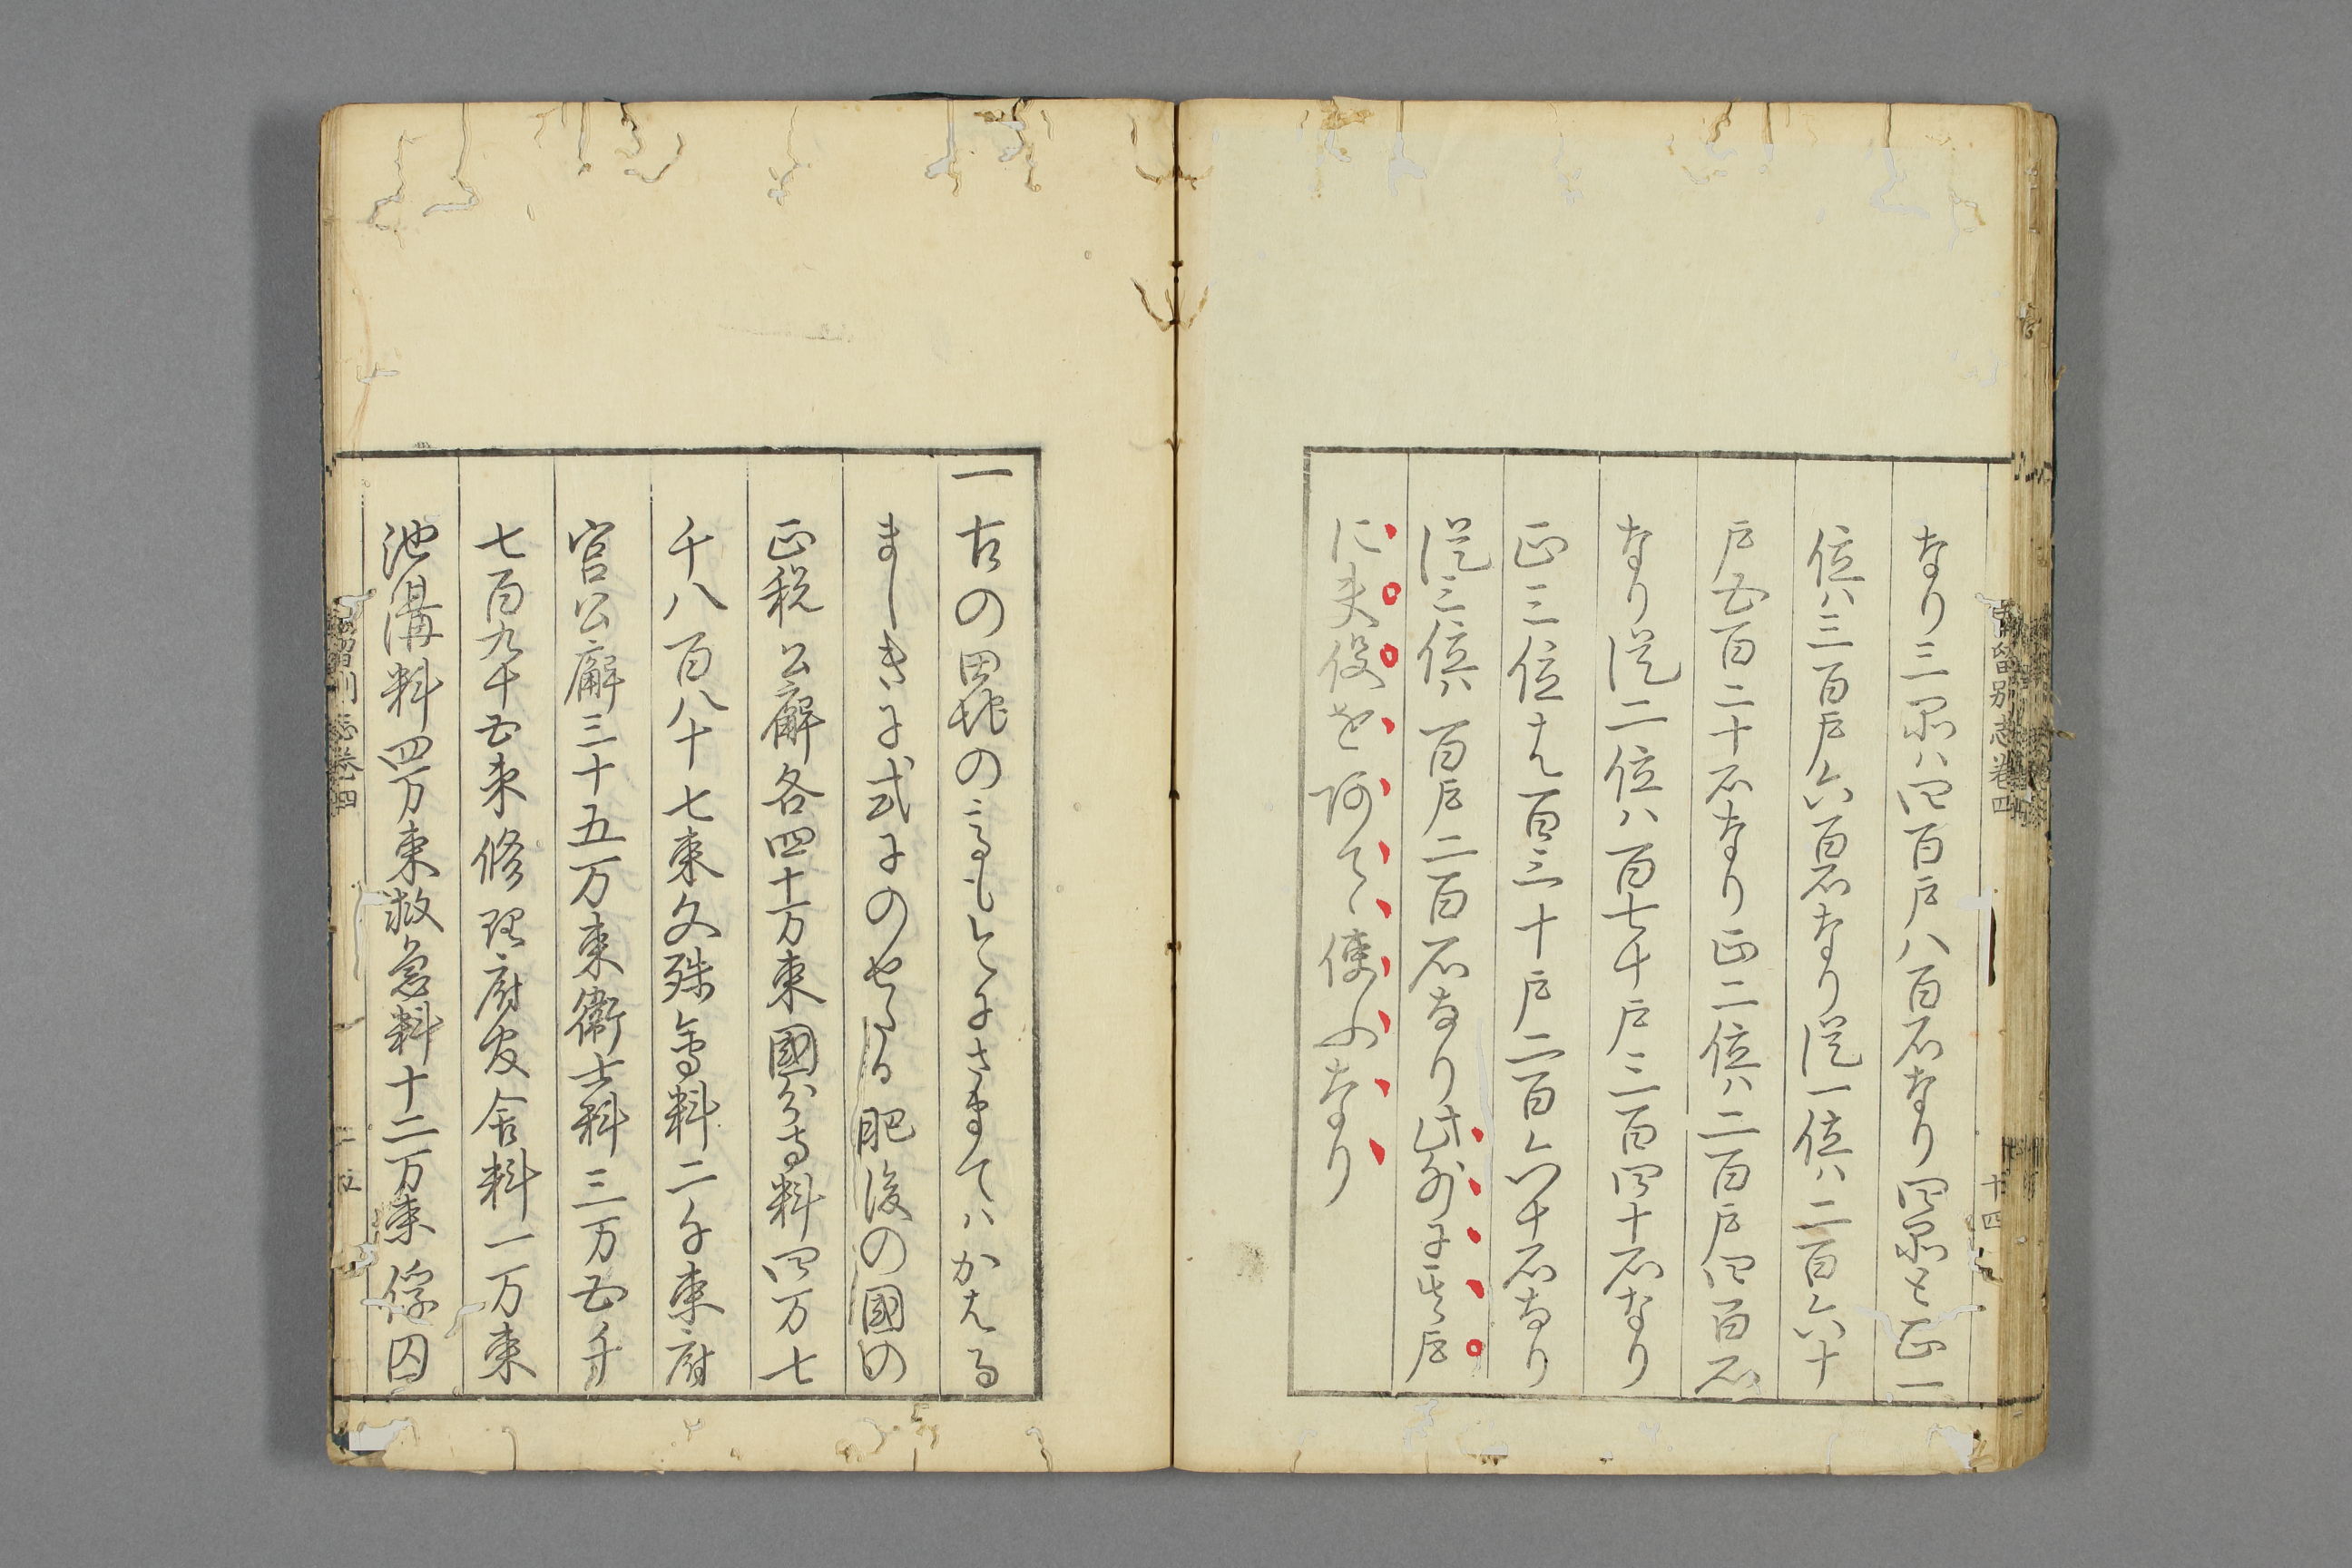 なり三品ハ四百戸八百石なり四品と正一
位ハ三百戸六百石なり従一位ハ二百六十
戸五百二十石なり正二位ハ二百戸四百石
なり従二位ハ百七十戸三百四十石なり
正三位は百三十戸二百六十石なり
従三位ハ百戸二百石なり此外に其戸
に夫役を河て使ふなり
南留別志巻四
十四
一古の田地のさまてハかはる
ましきに式にのせたる肥後の國の
正税公廨各四十万束國分寺料四万七
千八百八十七束文殊會料二千束府
官公廨三十五万束衛士料三万五千
七百九十五束修理府官舍料一万束
池溝料四万束救急料十二万束俘囚